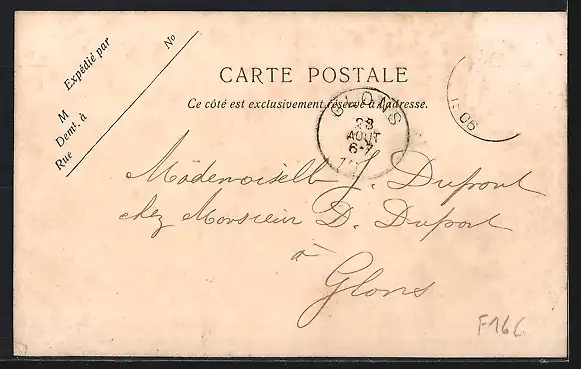 No
Expédié par
M
Demt. à
Rue
CARTE POSTALE
Ce côté est exclusivement réservé à l'adresse.
GLONS
23
AOUT
6-7
06
Mademoiselle J. Dupont
chez Monsieur D. Dupont
à
Glons
F16C